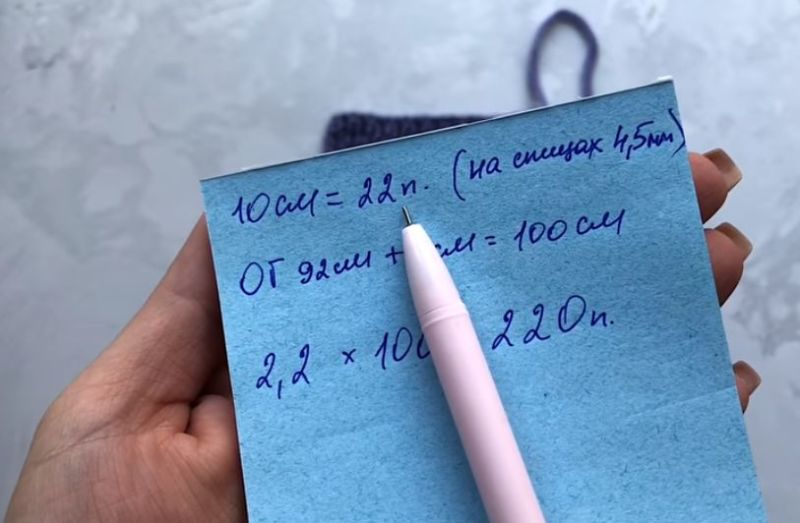 10см = 22п. (на спицах 4,5мм)
ОГ 92см + см = 100см
2,2 × 10 220п.